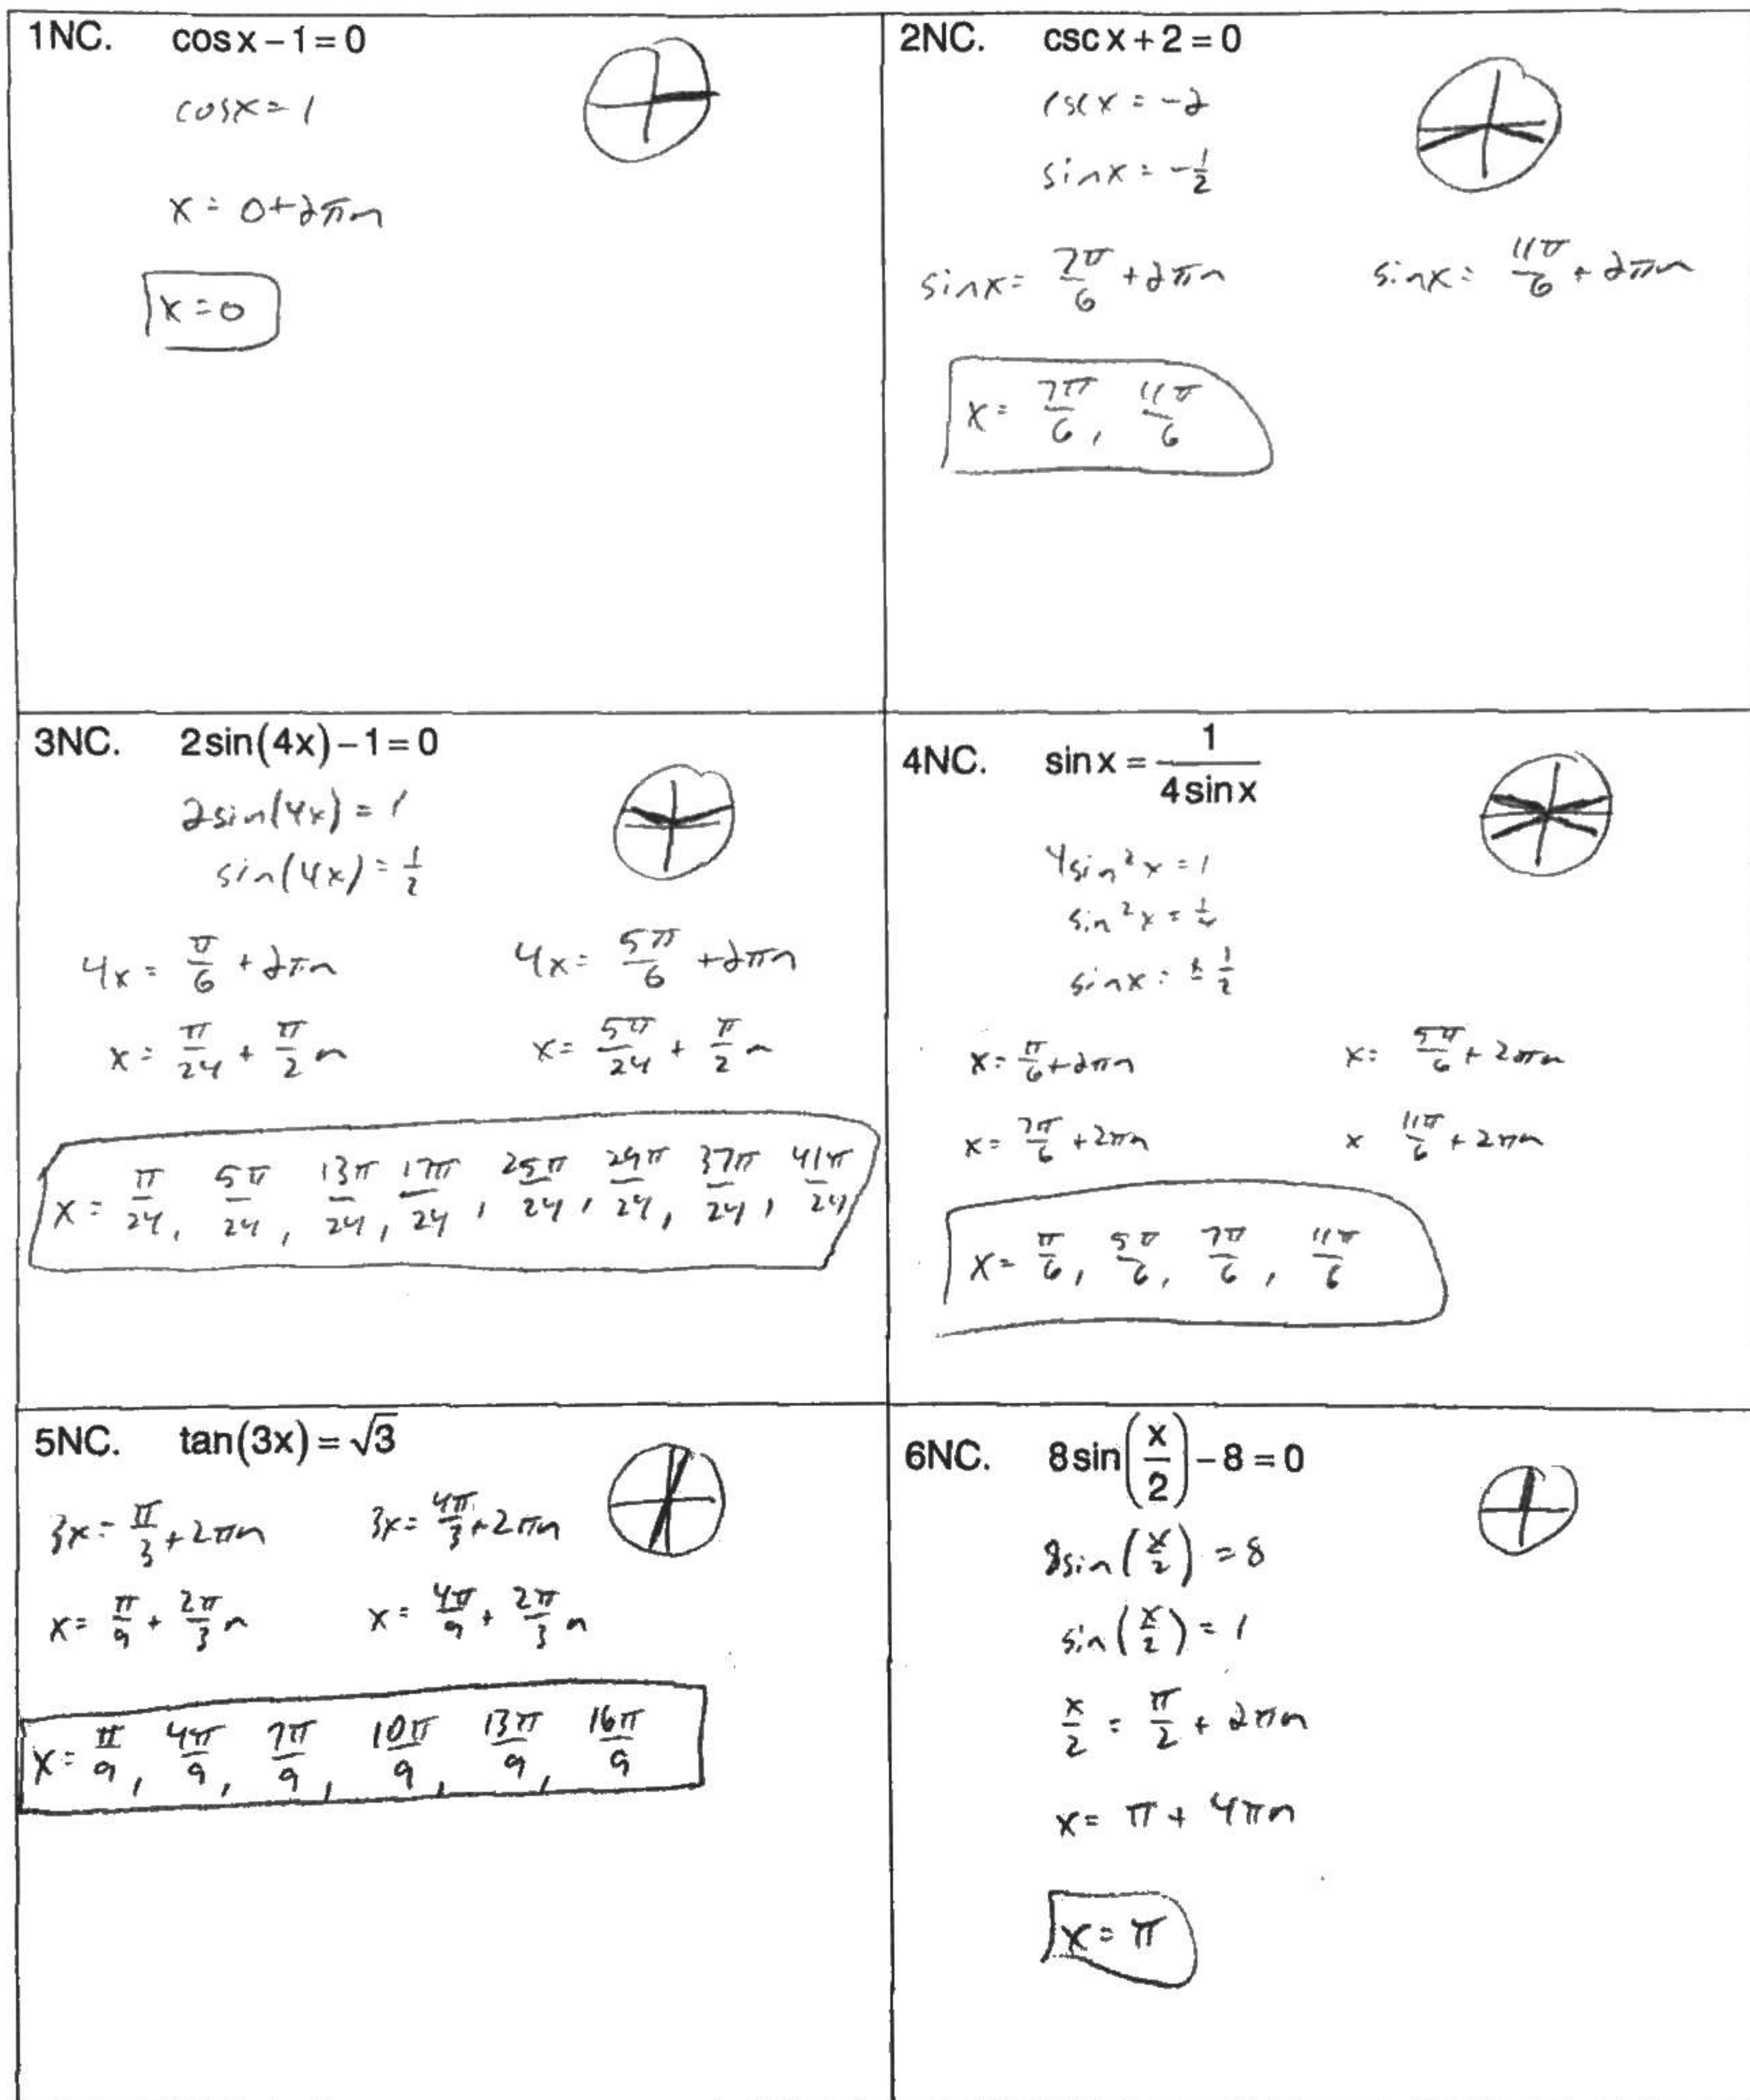 1NC. cos x − 1 = 0
cosx = 1
x = 0 + 2πn
x = 0
2NC. csc x + 2 = 0
cscx = −2
sinx = −1/2
sinx = 7π/6 + 2πn sinx = 11π/6 + 2πn
x = 7π/6, 11π/6
3NC. 2sin(4x) − 1 = 0
2sin(4x) = 1
sin(4x) = 1/2
4x = π/6 + 2πn 4x = 5π/6 + 2πn
x = π/24 + π/2 n x = 5π/24 + π/2 n
x = π/24, 5π/24, 13π/24, 17π/24, 25π/24, 29π/24, 37π/24, 41π/24
4NC. sin x = 1/(4 sin x)
4sin²x = 1
sin²x = 1/4
sinx = ± 1/2
x = π/6 + 2πn x = 5π/6 + 2πn
x = 7π/6 + 2πn x 11π/6 + 2πn
x = π/6, 5π/6, 7π/6, 11π/6
5NC. tan(3x) = √3
3x = π/3 + 2πn 3x = 4π/3 + 2πn
x = π/9 + 2π/3 n x = 4π/9 + 2π/3 n
x = π/9, 4π/9, 7π/9, 10π/9, 13π/9, 16π/9
6NC. 8sin(x/2) − 8 = 0
8sin(x/2) = 8
sin(x/2) = 1
x/2 = π/2 + 2πn
x = π + 4πn
x = π